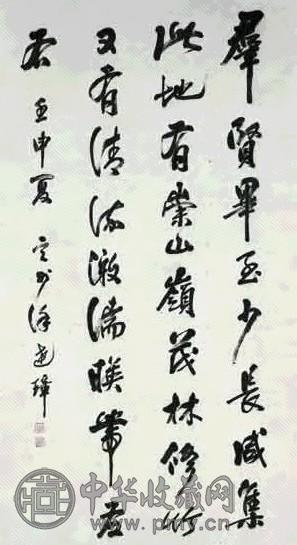 羣賢畢至少長咸集
此地有崇山嶺茂林修竹
又有清流激湍暎帶左
右 壬申夏
中华收藏网
www.pmfy.com